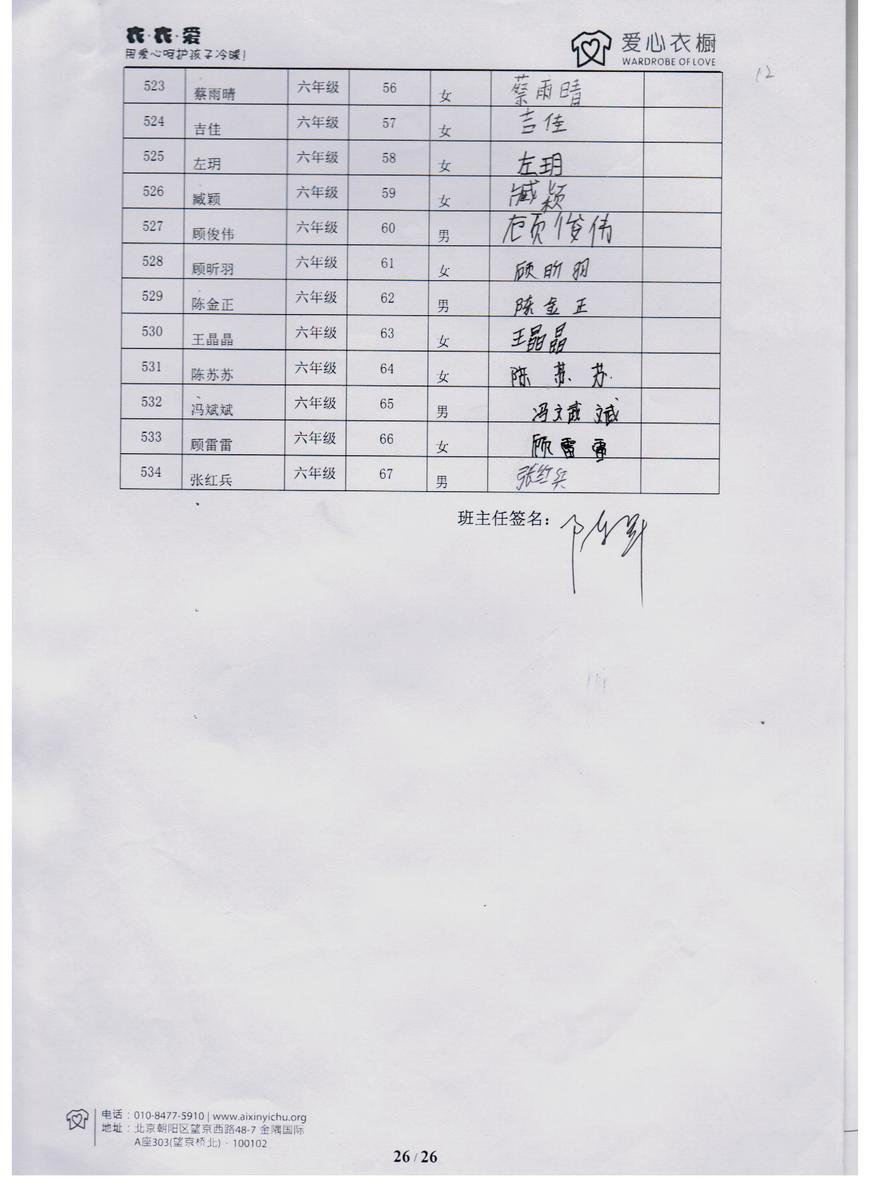 衣·衣·爱
用爱心呵护孩子冷暖!
爱心衣橱
WARDROBE OF LOVE
12
523 蔡雨晴 六年级 56 女 蔡雨晴
524 吉佳 六年级 57 女 吉佳
525 左玥 六年级 58 女 左玥
526 臧颖 六年级 59 女 臧颖
527 顾俊伟 六年级 60 男 顾俊伟
528 顾昕羽 六年级 61 女 顾昕羽
529 陈金正 六年级 62 男 陈金正
530 王晶晶 六年级 63 女 王晶晶
531 陈苏苏 六年级 64 女 陈苏苏
532 冯斌斌 六年级 65 男 冯斌斌
533 顾雷雷 六年级 66 女 顾雷雷
534 张红兵 六年级 67 男 张红兵
班主任签名：
电话：010-8477-5910 | www.aixinyichu.org
地址：北京朝阳区望京西路48-7 金隅国际
A座303(望京桥北)·100102
26 / 26